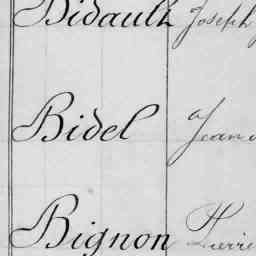 Bidault Joseph
Bidel Jean
Bignon Pierre